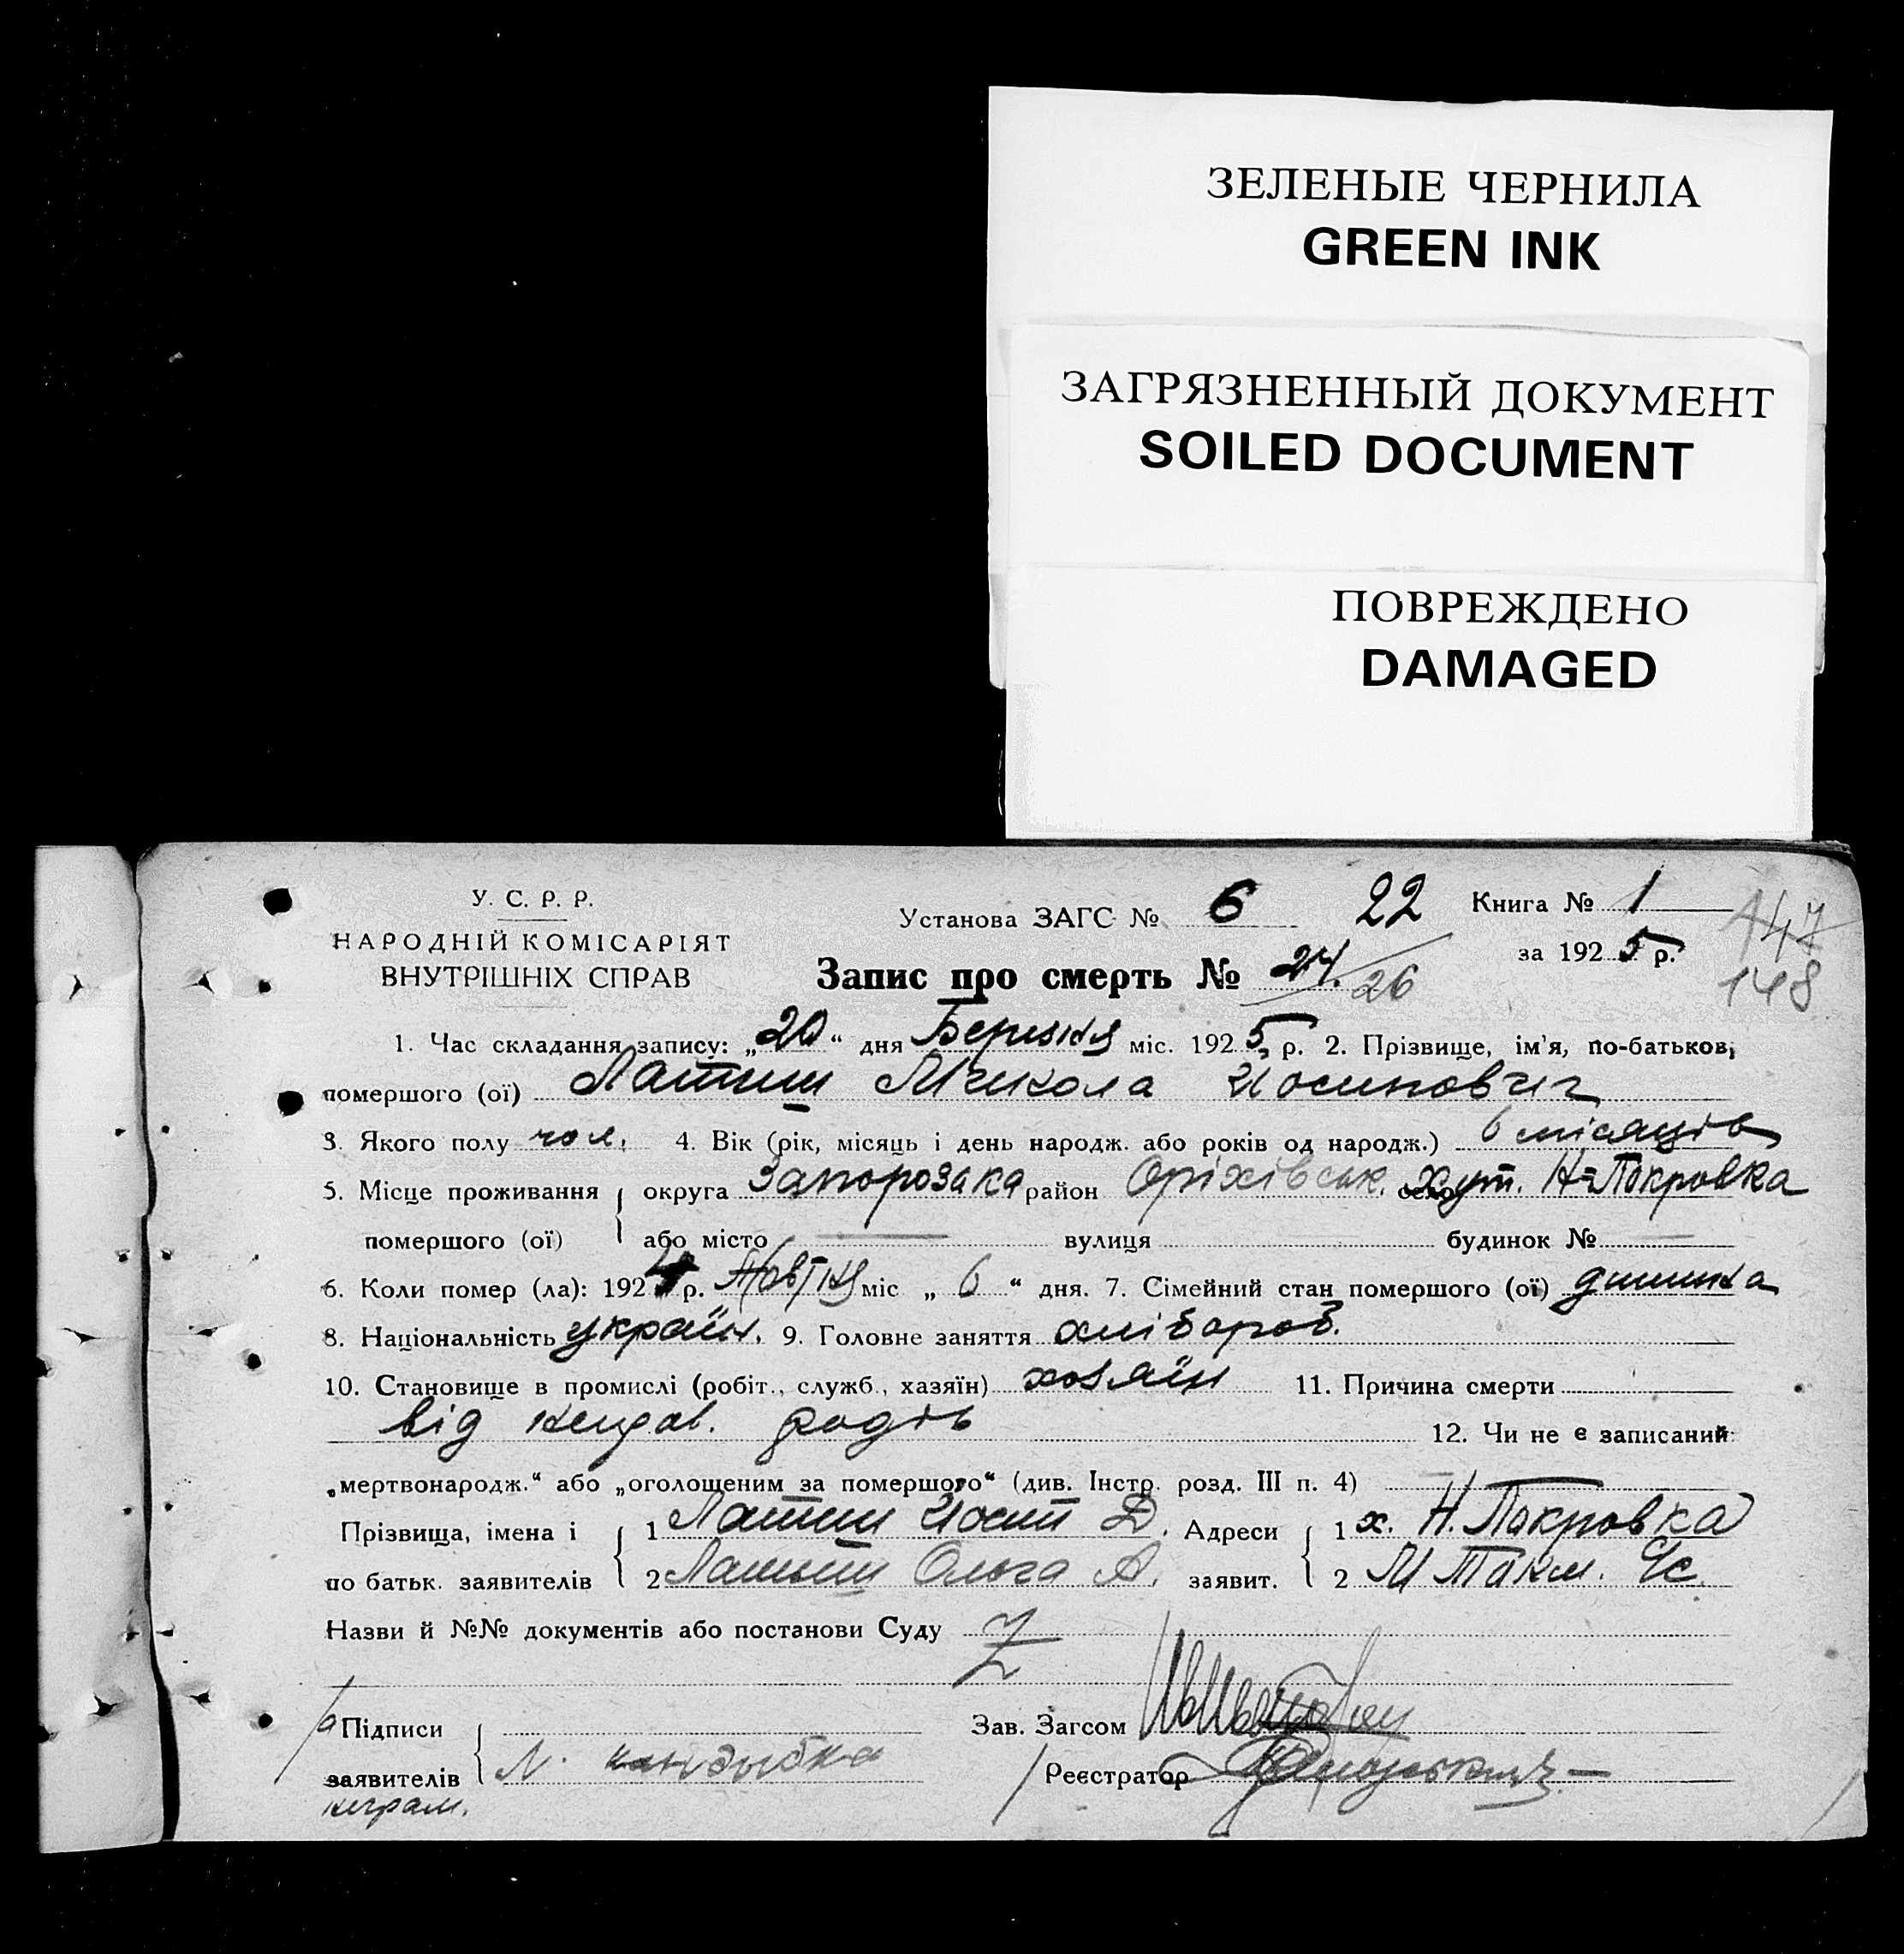 ЗЕЛЕНЫЕ ЧЕРНИЛА
GREEN INK
ЗАГРЯЗНЕННЫЙ ДОКУМЕНТ
SOILED DOCUMENT
ПОВРЕЖДЕНО
DAMAGED
У. С. Р. Р.
НАРОДНІЙ КОМІСАРІЯТ
ВНУТРІШНІХ СПРАВ
Установа ЗАГС № 6 22 Книга № 1
за 1925 р.
147
148
Запис про смерть № 24. 26
1. Час складання запису: „20“ дня Березня міс. 1925 р. 2. Прізвище, ім'я, по-батькові,
помершого (ої) Латиш Микола Иосипович
3. Якого полу чол. 4. Вік (рік, місяць і день народж. або років од народж.) 6 місяців
5. Місце проживання округа Запорозька район Оріхівськ. село хут. Н-Покровка
помершого (ої) або місто вулиця будинок №
6. Коли помер (ла): 1924 р. Жовтня міс „ 6 “ дня. 7. Сімейний стан помершого (ої) дитина
8. Національність україн. 9. Головне заняття хлібороб.
10. Становище в промислі (робіт., служб., хазяїн) хозяїн 11. Причина смерти
від родів 12. Чи не є записаний
„мертвонародж.“ або „оголошеним за помершого“ (див. Інстр. розд. III п. 4)
Прізвища, імена і 1 Латиш Иосип Д. Адреси 1 х. Н. Покровка
по батьк. заявителів 2 Латиш Ольга А. заявит. 2 М Токм.
Назви й №№ документів або постанови Суду
Підписи Зав. Загсом
заявителів Реєстратор
неграм.